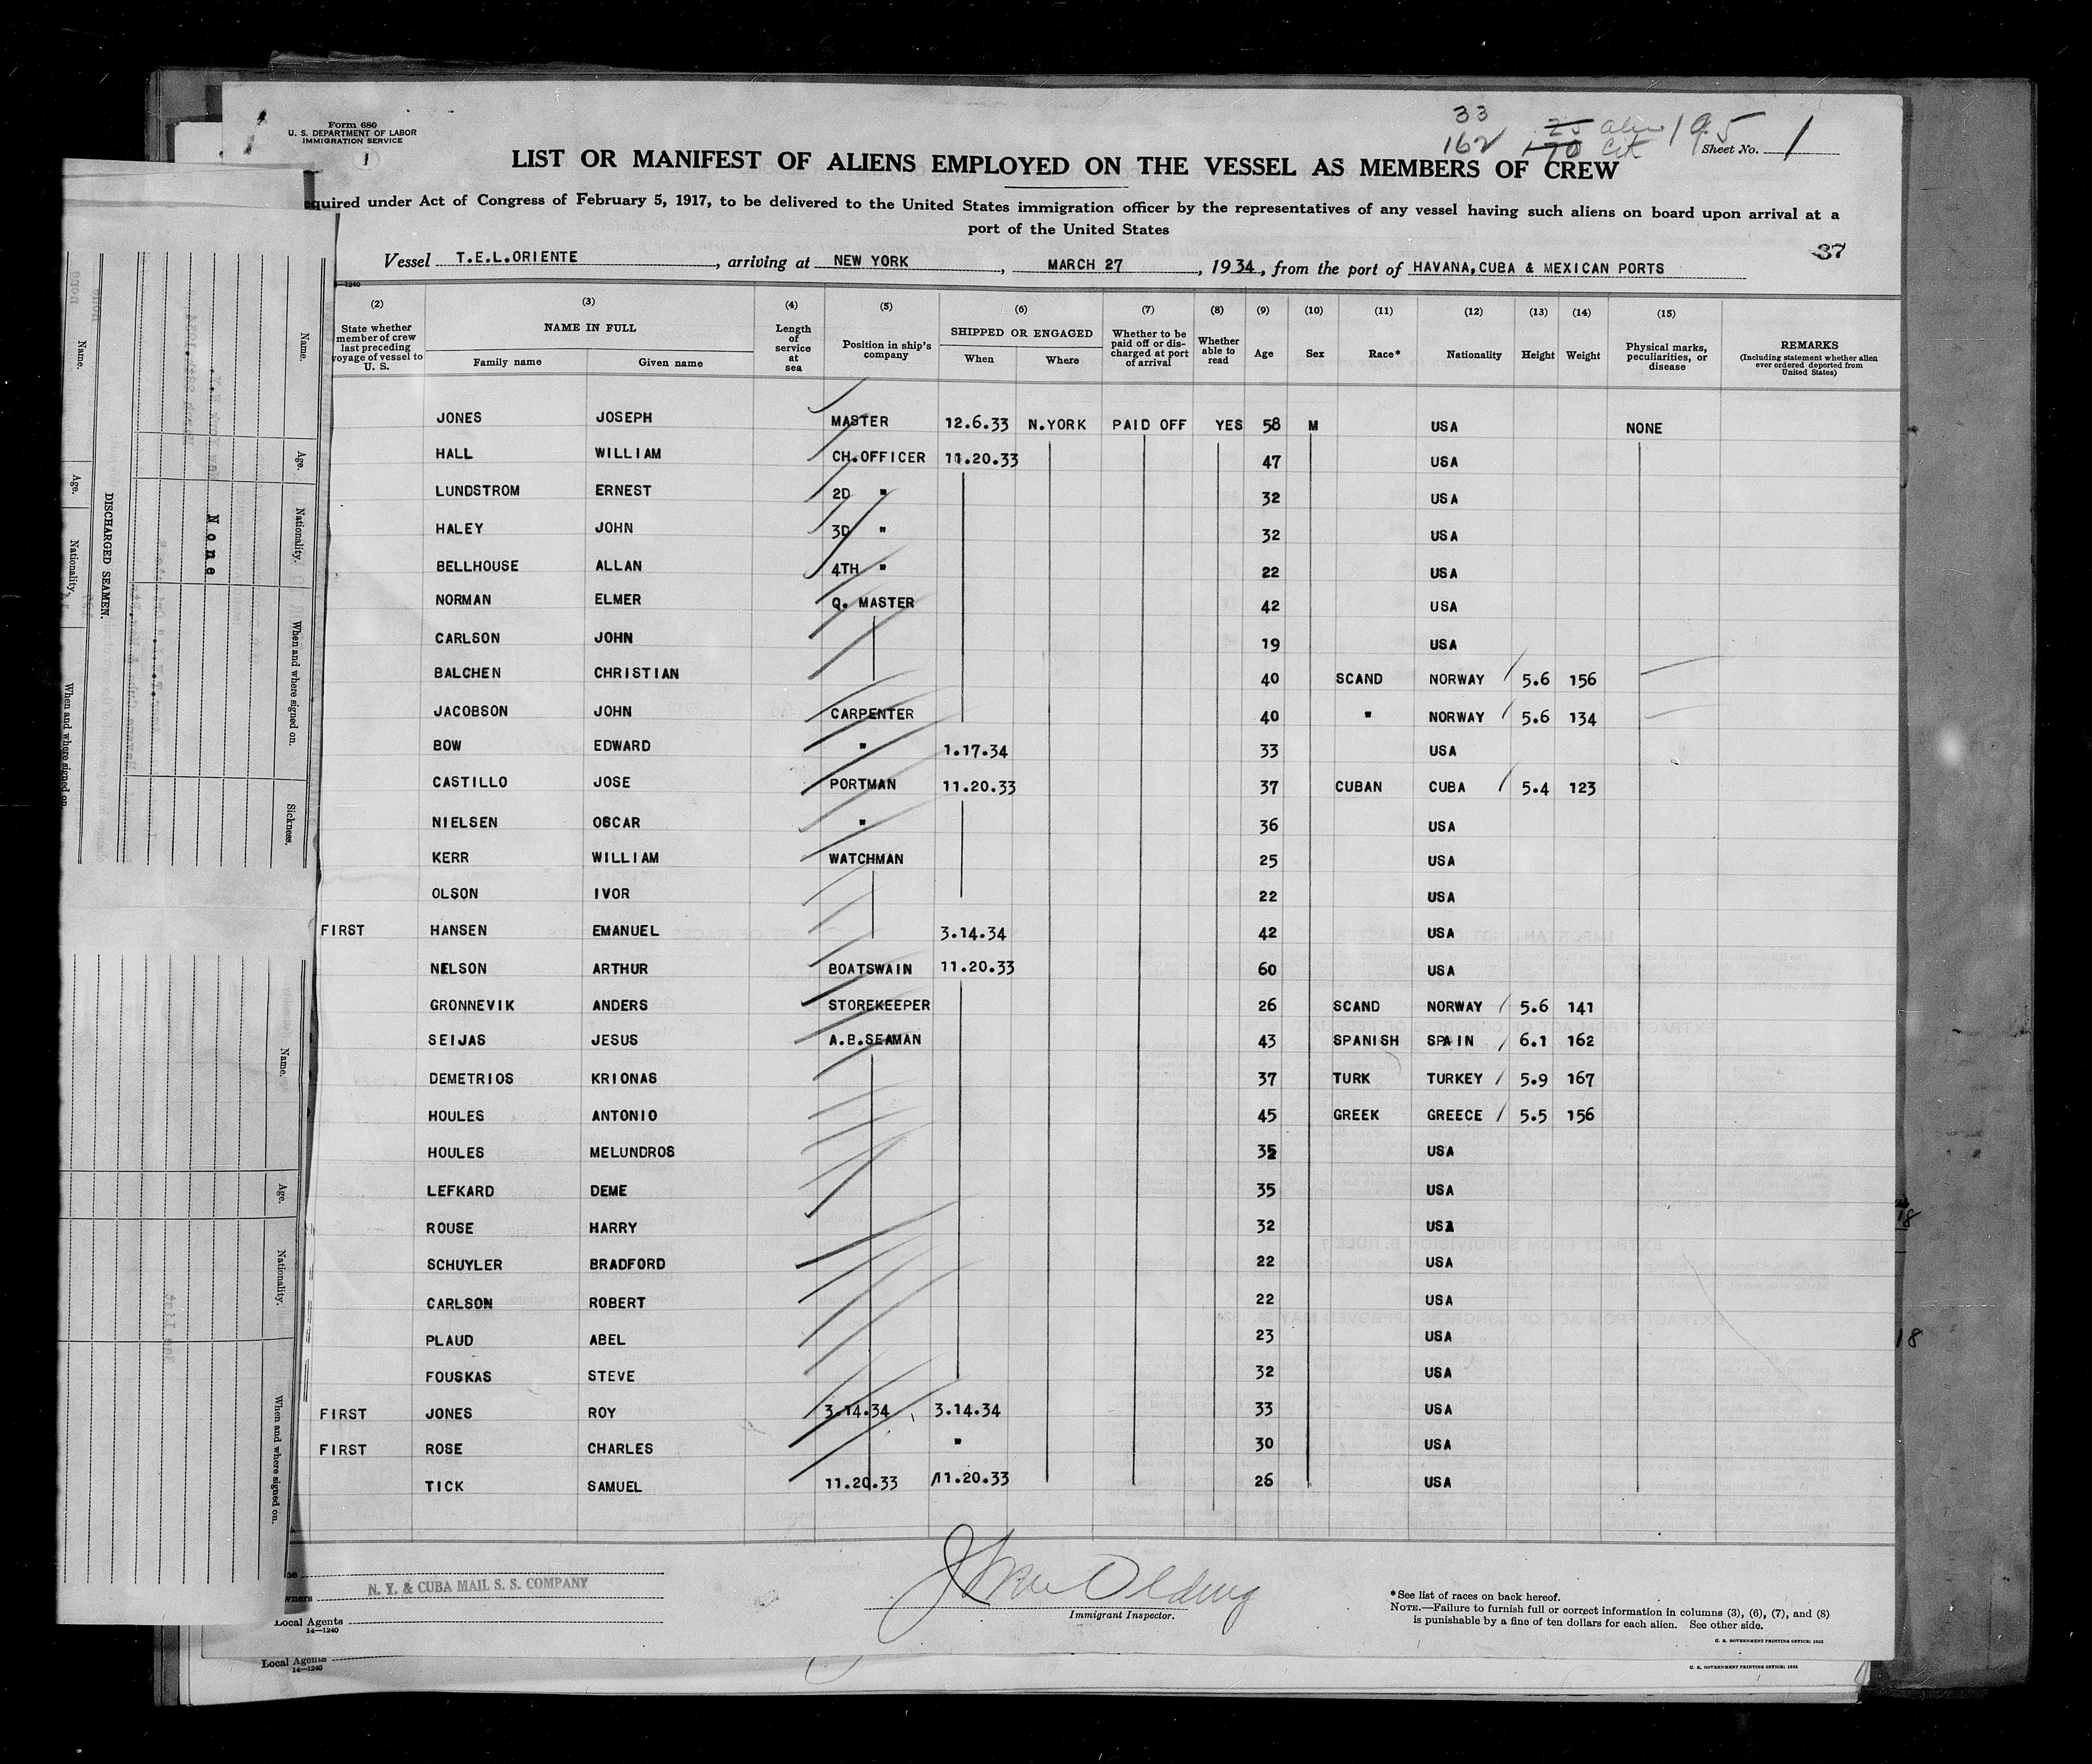 Form 680
U. S. DEPARTMENT OF LABOR
IMMIGRATION SERVICE
1
33
162
25
170
195
Sheet No. 1
LIST OR MANIFEST OF ALIENS EMPLOYED ON THE VESSEL AS MEMBERS OF CREW
equired under Act of Congress of February 5, 1917, to be delivered to the United States immigration officer by the representatives of any vessel having such aliens on board upon arrival at a
port of the United States
37
Vessel T.E.L.ORIENTE, arriving at NEW YORK, MARCH 27, 1934, from the port of HAVANA, CUBA & MEXICAN PORTS
(2) (3) (4) (5) (6) (7) (8) (9) (10) (11) (12) (13) (14) (15)
State whether member of crew last preceding voyage of vessel to U. S.
NAME IN FULL
Family name Given name
Length of service at sea
Position in ship's company
SHIPPED OR ENGAGED
When Where
Whether to be paid off or discharged at port of arrival
Whether able to read
Age Sex Race* Nationality Height Weight
Physical marks, peculiarities, or disease
REMARKS
(Including statement whether alien ever ordered deported from United States)
JONES JOSEPH MASTER 12.6.33 N.YORK PAID OFF YES 58 M USA NONE
HALL WILLIAM CH.OFFICER 11.20.33 47 USA
LUNDSTROM ERNEST 2D " 32 USA
HALEY JOHN 3D " 32 USA
BELLHOUSE ALLAN 4TH " 22 USA
NORMAN ELMER Q. MASTER 42 USA
CARLSON JOHN 19 USA
BALCHEN CHRISTIAN 40 SCAND NORWAY 5.6 156
JACOBSON JOHN CARPENTER 40 " NORWAY 5.6 134
BOW EDWARD " 1.17.34 33 USA
CASTILLO JOSE PORTMAN 11.20.33 37 CUBAN CUBA 5.4 123
NIELSEN OSCAR " 36 USA
KERR WILLIAM WATCHMAN 25 USA
OLSON IVOR 22 USA
FIRST HANSEN EMANUEL 3.14.34 42 USA
NELSON ARTHUR BOATSWAIN 11.20.33 60 USA
GRONNEVIK ANDERS STOREKEEPER 26 SCAND NORWAY 5.6 141
SEIJAS JESUS A.B.SEAMAN 43 SPANISH SPAIN 6.1 162
DEMETRIOS KRIONAS 37 TURK TURKEY 5.9 167
HOULES ANTONIO 45 GREEK GREECE 5.5 156
HOULES MELUNDROS 35 USA
LEFKARD DEME 35 USA
ROUSE HARRY 32 USA
SCHUYLER BRADFORD 22 USA
CARLSON ROBERT 22 USA
PLAUD ABEL 23 USA
FOUSKAS STEVE 32 USA
FIRST JONES ROY 3.14.34 3.14.34 33 USA
FIRST ROSE CHARLES " 30 USA
TICK SAMUEL 11.20.33 11.20.33 26 USA
N. Y. & CUBA MAIL S. S. COMPANY
wners
Local Agents
14—1240
Immigrant Inspector.
*See list of races on back hereof.
NOTE.—Failure to furnish full or correct information in columns (3), (6), (7), and (8)
is punishable by a fine of ten dollars for each alien. See other side.
U. S. GOVERNMENT PRINTING OFFICE: 1932
Local Agents
14—1240
U. S. GOVERNMENT PRINTING OFFICE: 1932
18
18
Name. Age. Nationality. When and where signed on. Sickness.
None
DISCHARGED SEAMEN.
Name. Age. Nationality. When and where signed on.
Name. Age. Nationality. When and where signed on.